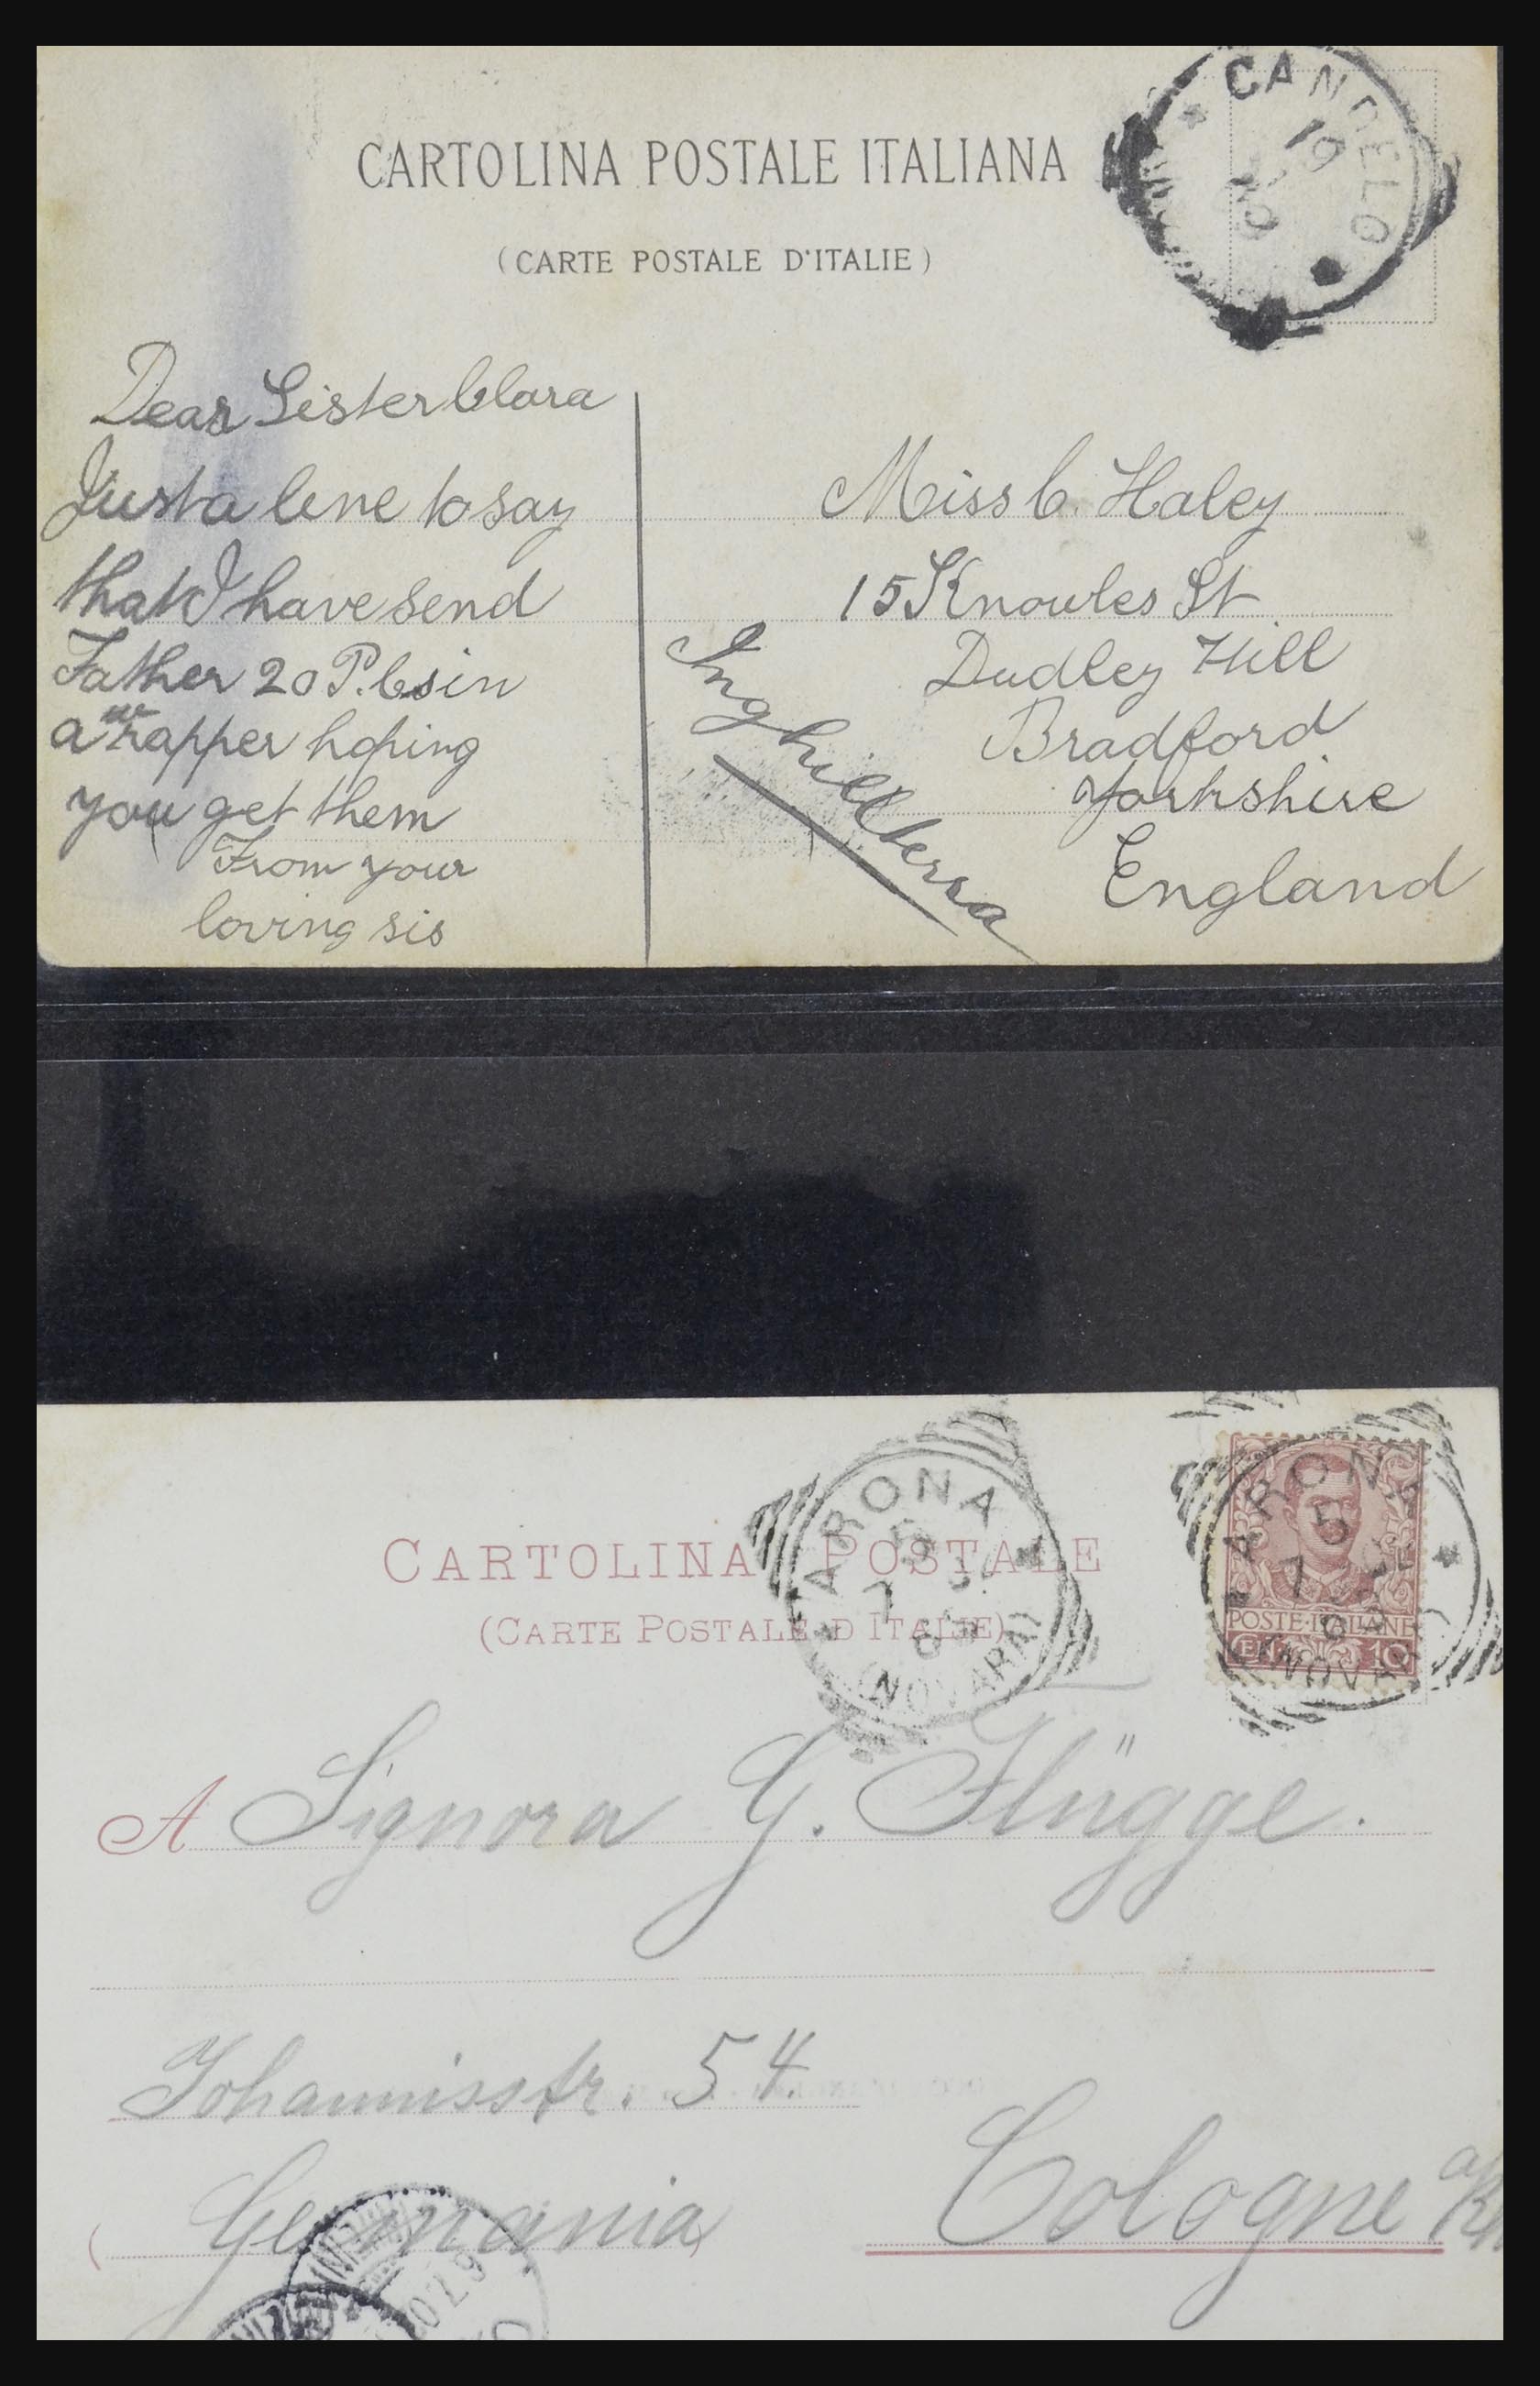 CARTOLINA POSTALE ITALIANA
(CARTE POSTALE D'ITALIE)
CANDELO
19
Dear Sister Clara
Just a line to say
that I have send
Father 20 P. Cs in
a wrapper hoping
you get them
From your
loving sis
Miss C. Haley
15 Knowles St
Dudley Hill
Bradford
Yorkshire
England
Inghilterra
CARTOLINA POSTALE
(CARTE POSTALE D'ITALIE)
ARONA
5
7
(NOVARA)
ARONA
5
7
(NOVARA)
POSTE·ITALIANE
CEN. 10
A Signora G. Flügge.
Johannisstr. 54
(Germania)
Cologne a/Rh